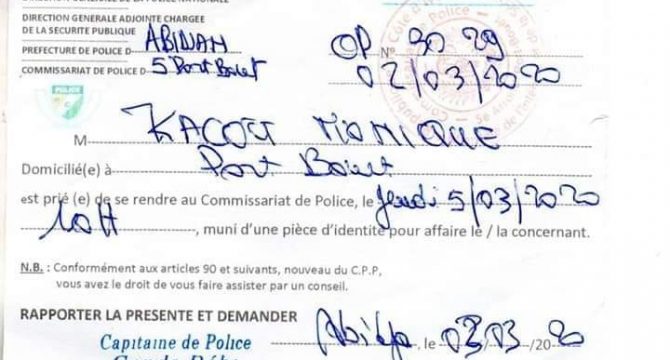 DIRECTION GENERALE ADJOINTE CHARGEE
DE LA SECURITE PUBLIQUE
PREFECTURE DE POLICE D ABIDJAN OP N° 30 29
COMMISSARIAT DE POLICE D 5 Port Bouet 02/03/2020
POLICE
M KACOU MONIQUE
Domicilié(e) à Port Bouet
est prié (e) de se rendre au Commissariat de Police, le Jeudi 5/03/2020
10H, muni d'une pièce d'identité pour affaire le / la concernant.
N.B. : Conformément aux articles 90 et suivants, nouveau du C.P.P,
vous avez le droit de vous faire assister par un conseil.
RAPPORTER LA PRESENTE ET DEMANDER
Abidjan, le 02/03/2020
Capitaine de Police